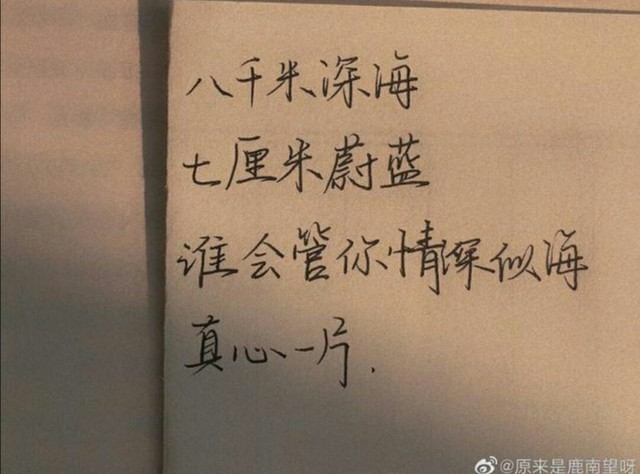 八千米深海
七厘米蔚蓝
谁会管你情深似海
真心一片.
@原来是鹿南望呀